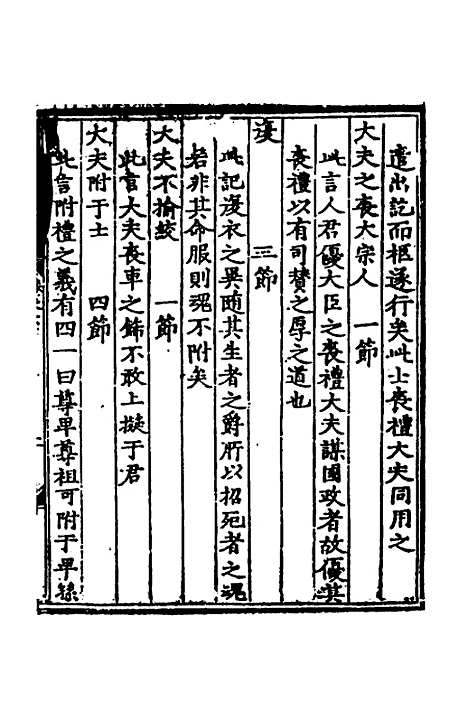 遣出訖而柩遂行矣此士喪禮大夫同用之
大夫之喪大宗人　一節
此言人君優大臣之喪禮大夫謀國政者故優其
喪禮以有司賛之厚之道也
復　　三節
此記復衣之異随其生者之爵所以招死者之魂
若非其命服則魂不附矣
大夫不揄絞　一節
此言大夫喪車之飾不敢上擬于君
大夫附于士　四節
此言附禮之義有四一曰尊卑尊祖可附于卑孫